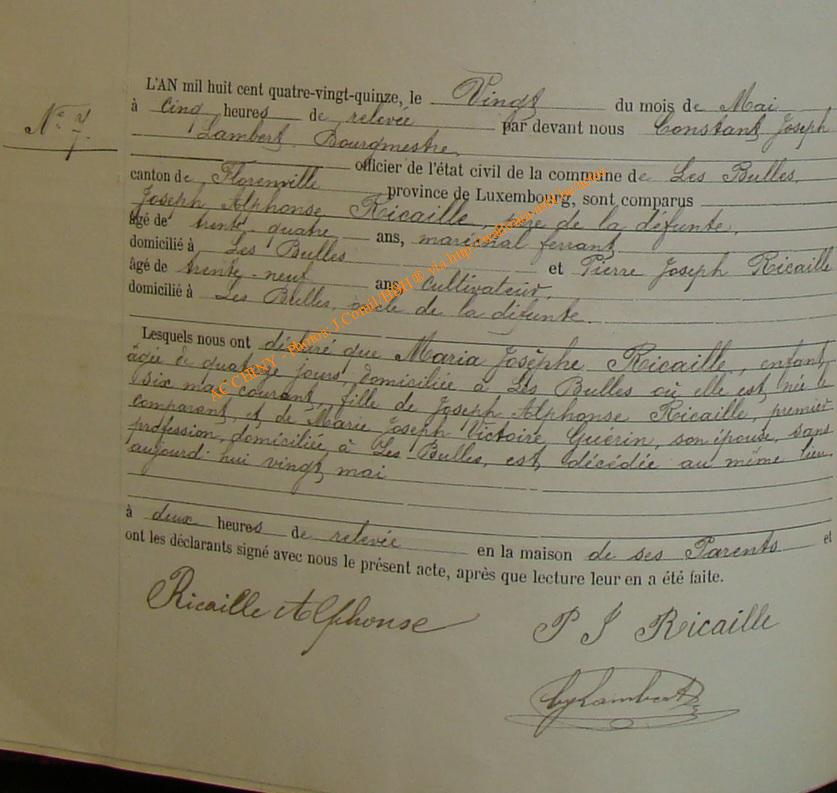 L'AN mil huit cent quatre-vingt-quinze, le Vingt du mois de Mai
N° 7.
à cinq heures de relevée par devant nous Constant Joseph
Lambert Bourgmestre
officier de l'état civil de la commune de Les Bulles,
canton de Florenville province de Luxembourg, sont comparus
Joseph Alphonse Ricaille, père de la défunte,
âgé de trente-quatre ans, maréchal ferrant
domicilié à Les Bulles et Pierre Joseph Ricaille
âgé de trente-neuf ans, cultivateur,
domicilié à Les Bulles, oncle de la défunte.
Lesquels nous ont déclaré que Maria Josèphe Ricaille, enfant,
âgée de quatorze jours, domiciliée à Les Bulles où elle est née le
six mai courant, fille de Joseph Alphonse Ricaille, premier
comparant, et de Marie Joseph Victoire Guérin, son épouse, sans
profession, domiciliée à Les Bulles, est décédée au même lieu,
aujourd'hui vingt mai
à deux heures de relevée en la maison de ses Parents et
ont les déclarants signé avec nous le présent acte, après que lecture leur en a été faite.
Ricaille Alphonse
P J Ricaille
Lambert
AC CHINY - Photos J